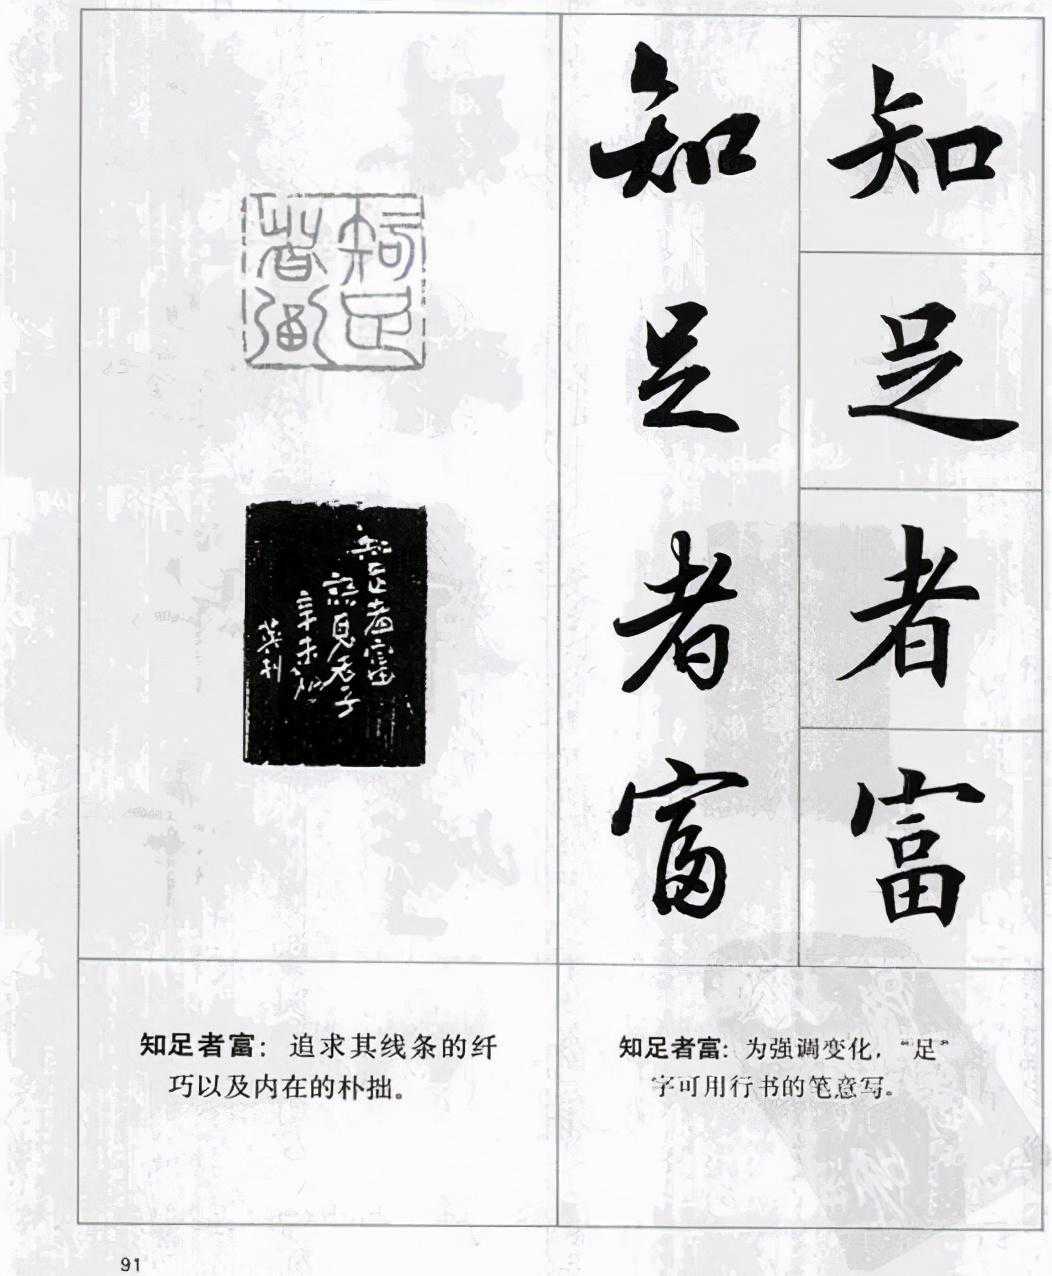 知足者富
知足者富
知足者富
知足者富
語見老子
辛未
英利
知足者富：追求其线条的纤
巧以及内在的朴拙。
知足者富：为强调变化，“足”
字可用行书的笔意写。
91